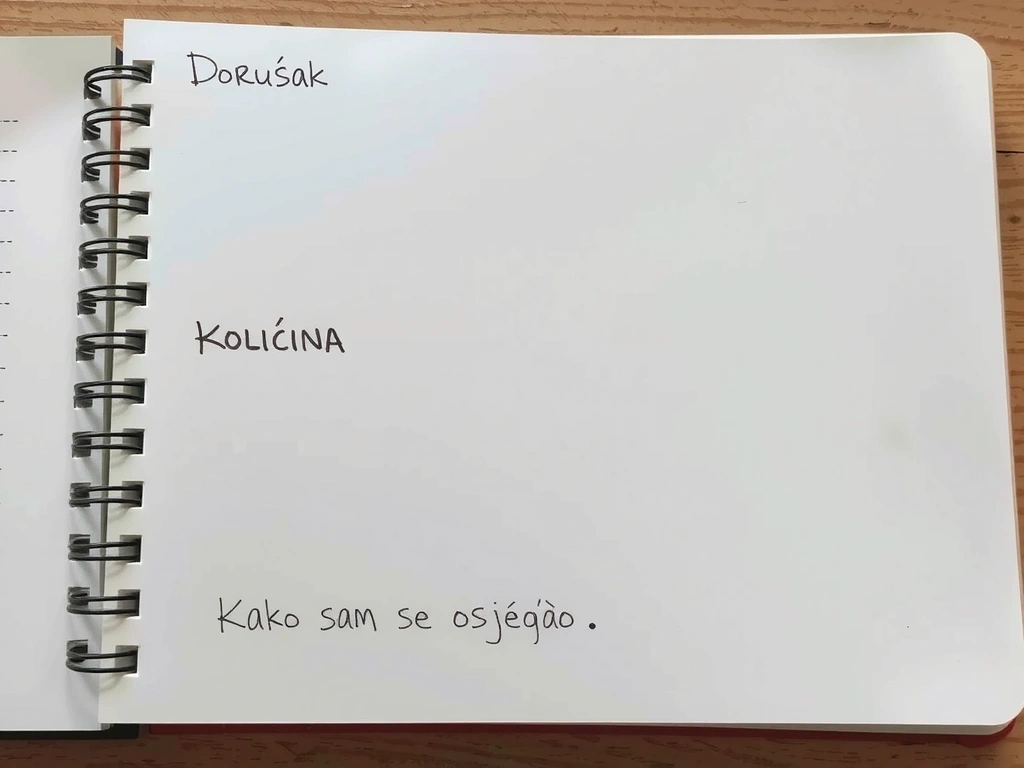 Doruśak
KOLIĆINA
Kako sam se osjéq̇̀ào.